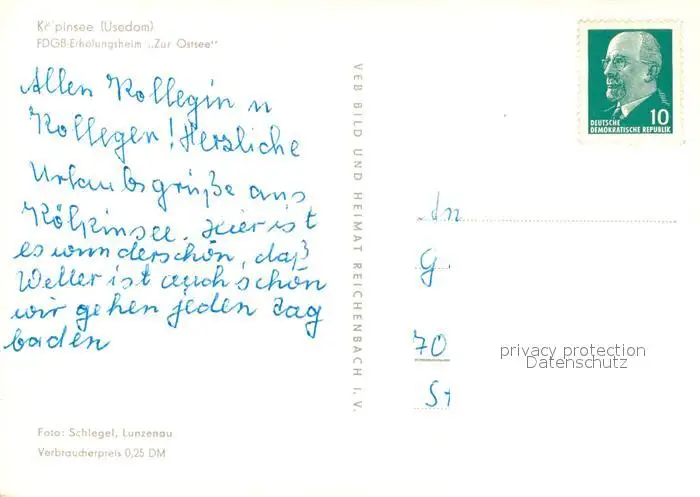 Kölpinsee (Usedom)
FDGB-Erholungsheim „Zur Ostsee"
Allen Kollegin u
Kollegen! Herzliche
Urlaubsgrüße aus
Kölpinsee. Hier ist
es wunderschön, daß
Wetter ist auch schön
wir gehen jeden Tag
baden
Foto: Schlegel, Lunzenau
Verbraucherpreis 0,25 DM
VEB BILD UND HEIMAT REICHENBACH I. V.
DEUTSCHE
DEMOKRATISCHE REPUBLIK
10
An
G.
70
St
privacy protection
Datenschutz